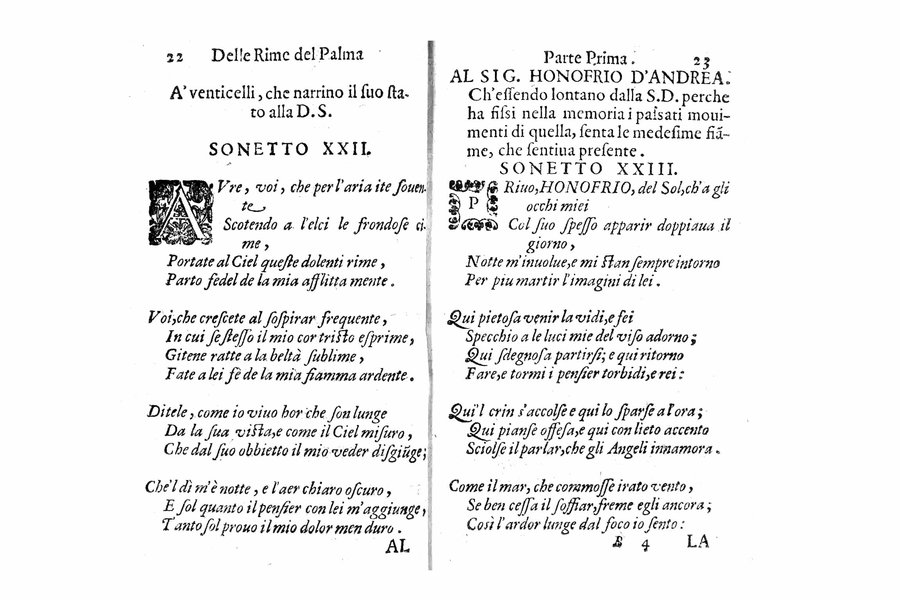 22 Delle Rime del Palma
A' venticelli, che narrino il ſuo ſta-
to alla D. S.
SONETTO XXII.
AVre, voi, che per l'aria ite ſouen-
te,
Scotendo a l'elci le frondoſe ci-
me,
Portate al Ciel queſte dolenti rime,
Parto fedel de la mia afflitta mente.
Voi, che creſcete al ſoſpirar frequente,
In cui ſe ſteſſo il mio cor triſto eſprime,
Gitene ratte a la beltà ſublime,
Fate a lei fè de la mia fiamma ardente.
Ditele, come io viuo hor che ſon lunge
Da la ſua viſta, e come il Ciel miſuro,
Che dal ſuo obbietto il mio veder diſgiũge;
Che'l dì m'è notte, e l'aer chiaro oſcuro,
E ſol quanto il penſier con lei m'aggiunge,
Tanto ſol prouo il mio dolor men duro.
AL
Parte Prima. 23
AL SIG. HONOFRIO D'ANDREA.
Ch'eſſendo lontano dalla S.D. perche
ha fiſſi nella memoria i paſsati moui-
menti di quella, ſenta le medeſime fiã-
me, che ſentiua preſente.
SONETTO XXIII.
PRiuo, HONOFRIO, del Sol, ch'a gli
occhi miei
Col ſuo ſpeſſo apparir doppiaua il
giorno,
Notte m'inuolue, e mi ſtan ſempre intorno
Per piu martir l'imagini di lei.
Qui pietoſa venir la vidi, e fei
Specchio a le luci mie del viſo adorno;
Qui ſdegnoſa partirſi; e qui ritorno
Fare, e tormi i penſier torbidi, e rei:
Qui'l crin s'accolſe e qui lo ſparſe a l'ora;
Qui pianſe offeſa, e qui con lieto accento
Sciolſe il parlar, che gli Angeli innamora.
Come il mar, che commoſſe irato vento,
Se ben ceſſa il ſoffiar, freme egli ancora;
Così l'ardor lunge dal foco io ſento:
B 4 LA